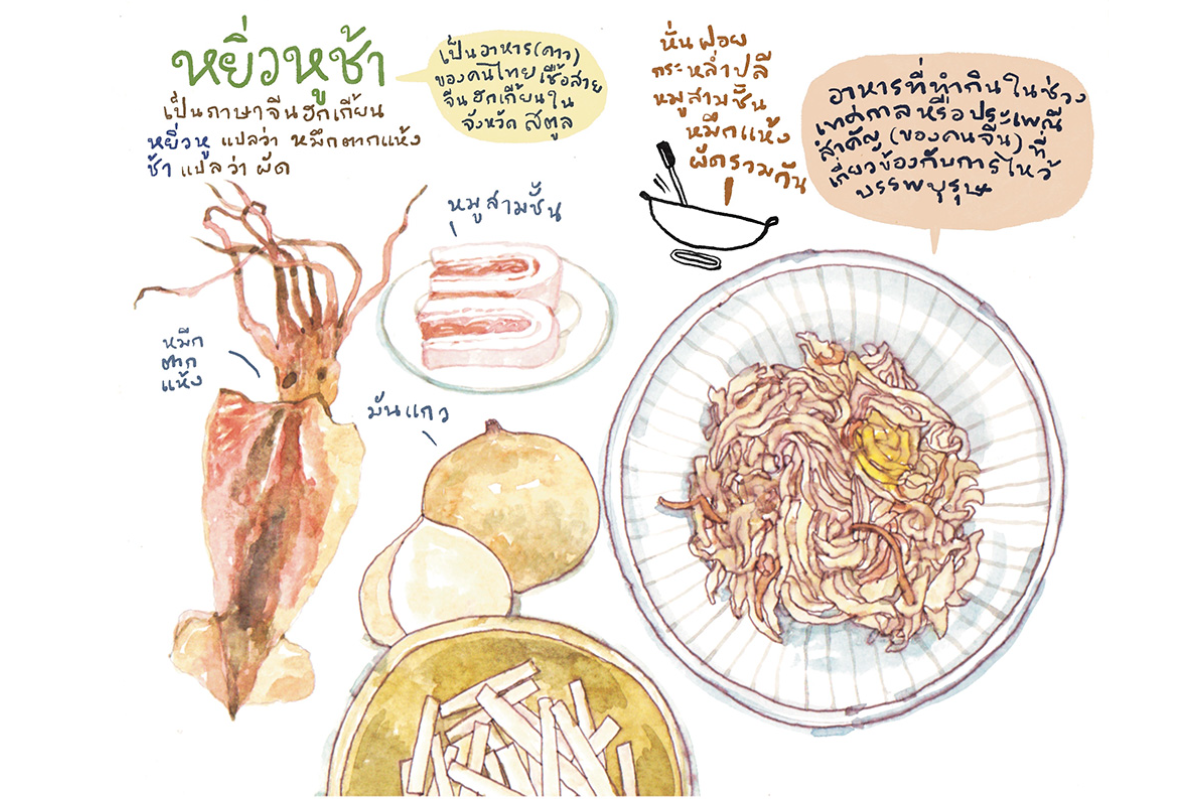 หยิ่วหูช้า
เป็นภาษาจีนฮกเกี้ยน
หยิ่วหู แปลว่า หมึกตากแห้ง
ช้า แปลว่า ผัด
เป็นอาหาร(คาว)
ของคนไทยเชื้อสาย
จีนฮกเกี้ยนใน
จังหวัด สตูล
หั่นฝอย
กระหล่ำปลี
หมูสามชั้น
หมึกแห้ง
ผัดรวมกัน
อาหารที่ทำกินในช่วง
เทศกาลหรือประเพณี
สำคัญ (ของคนจีน) ที่
เกี่ยวข้องกับการไหว้
บรรพบุรุษ
หมูสามชั้น
หมึก
ตาก
แห้ง
มันแกว